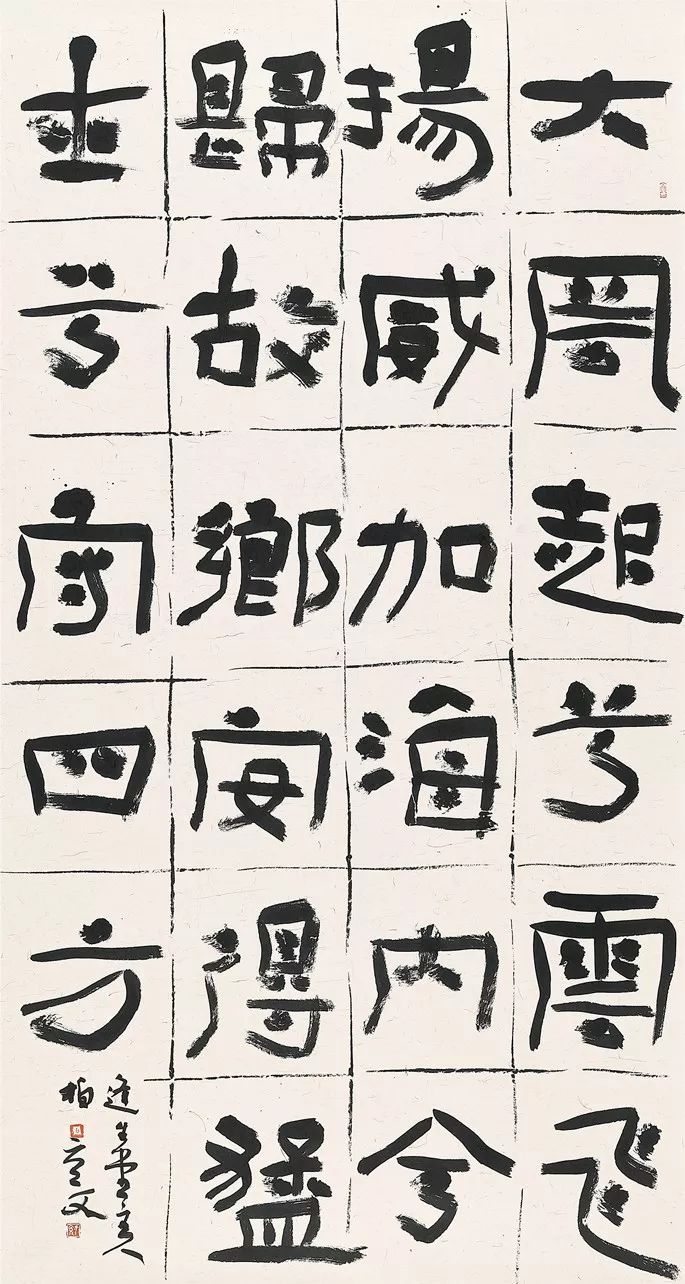 大風起兮雲飛
揚威加海內兮
歸故鄉安得猛
士兮守四方
堂主人
柏文